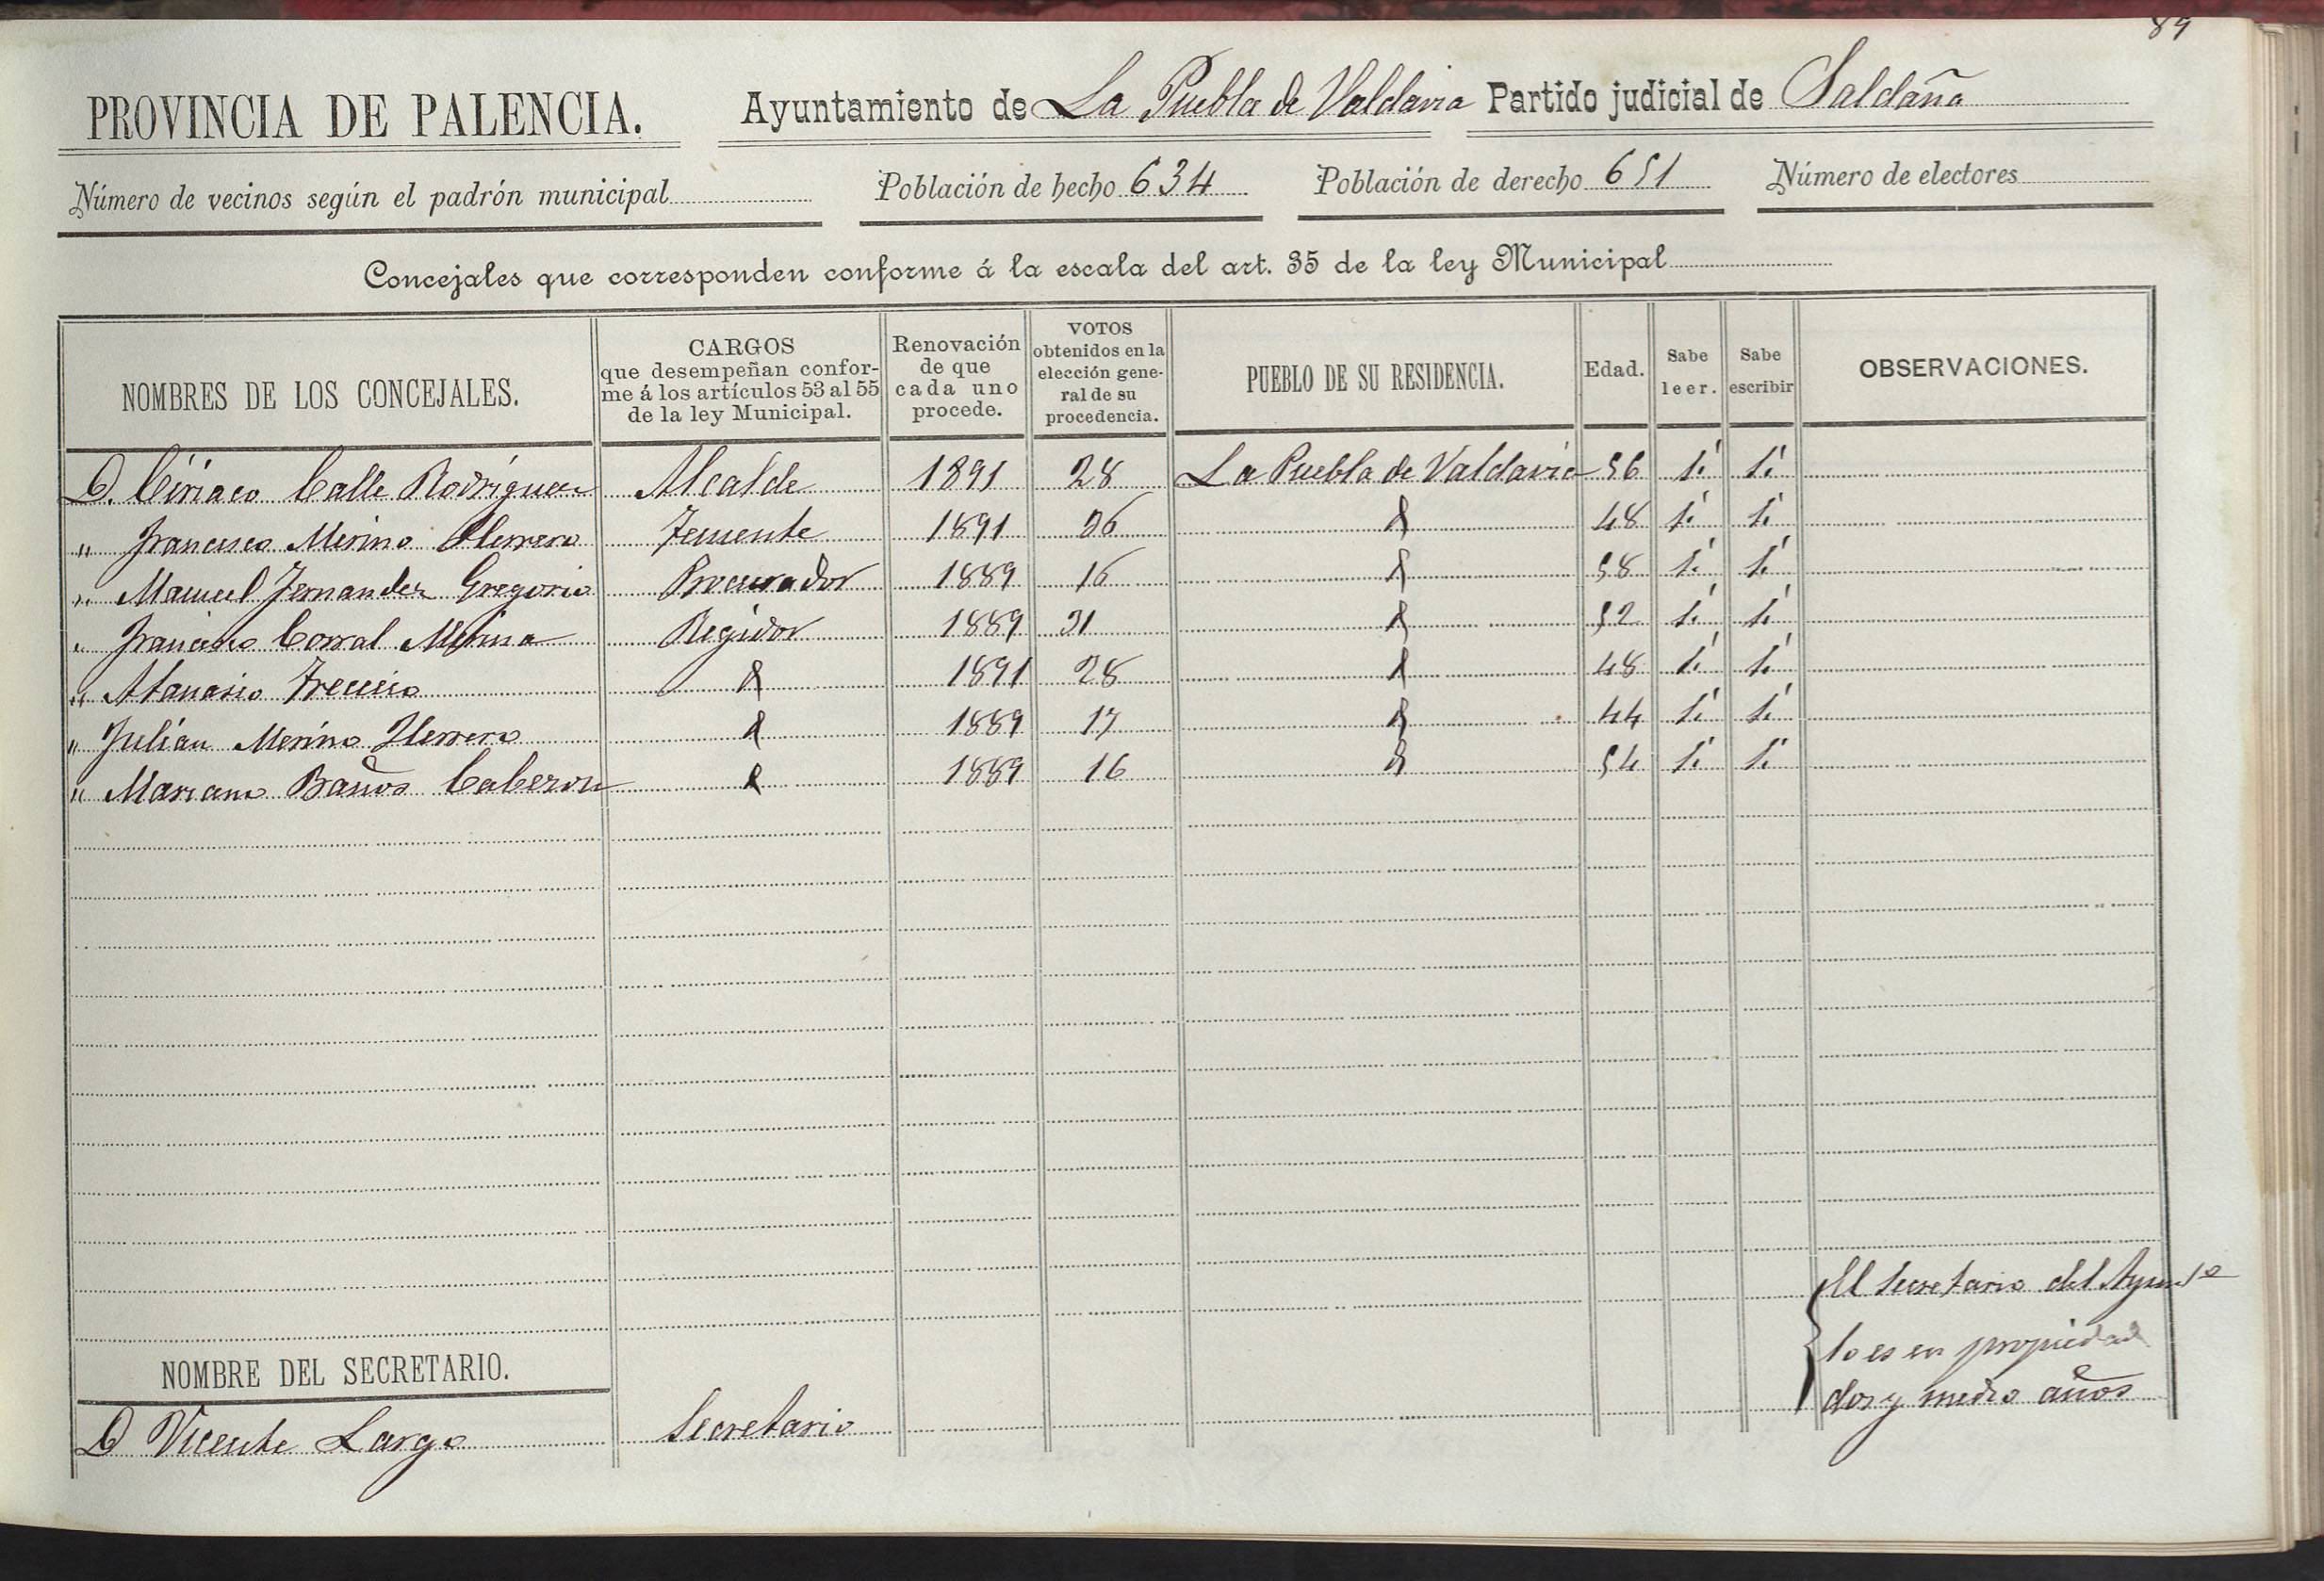 89
PROVINCIA DE PALENCIA. Ayuntamiento de La Puebla de Valdavia Partido judicial de Saldaña
Número de vecinos según el padrón municipal Población de hecho 634 Población de derecho 651 Número de electores
Concejales que corresponden conforme á la escala del art. 35 de la ley Municipal
NOMBRES DE LOS CONCEJALES. CARGOS que desempeñan conforme á los artículos 53 al 55 de la ley Municipal. Renovación de que cada uno procede. VOTOS obtenidos en la elección general de su procedencia. PUEBLO DE SU RESIDENCIA. Edad. Sabe leer. Sabe escribir OBSERVACIONES.
D. Ciriaco Calle Rodríguez Alcalde 1891 28 La Puebla de Valdavia 56 si si
" Francisco Merino Herrero Teniente 1891 26 48 si si
" Manuel Fernandez Gregorio Procurador 1889 16 58 si si
" Francisco Corral Merino Regidor 1889 21 52 si si
" Atanasio 1891 28 48 si si
" Julián Merino Herrero 1889 17 44 si si
" Mariano Baños 1889 16 54 si si
El Secretario del Ayunto
lo es en propiedad
dos y medio años
NOMBRE DEL SECRETARIO.
D Vicente Largo Secretario